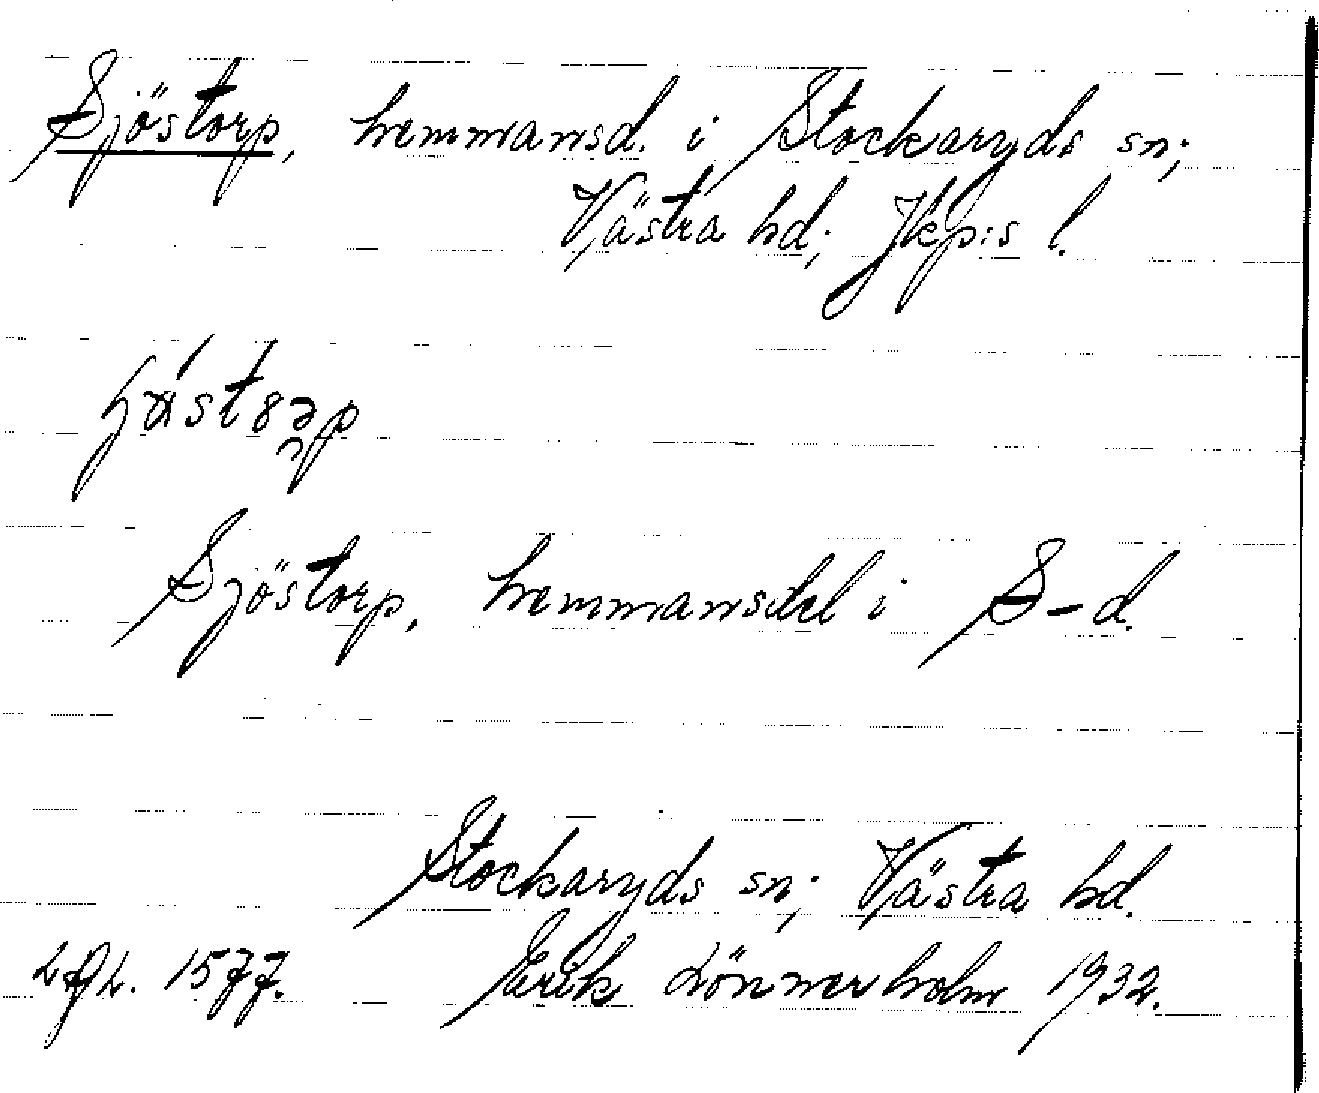 Sjöstorp, hemmansd. i Stockaryds sn;
Västra hd; Jkp:s l.
Sjöstorp, hemmansdel i S-d.
Stockaryds sn; Västra hd.
1577. Erik Lönnerholm 1932.